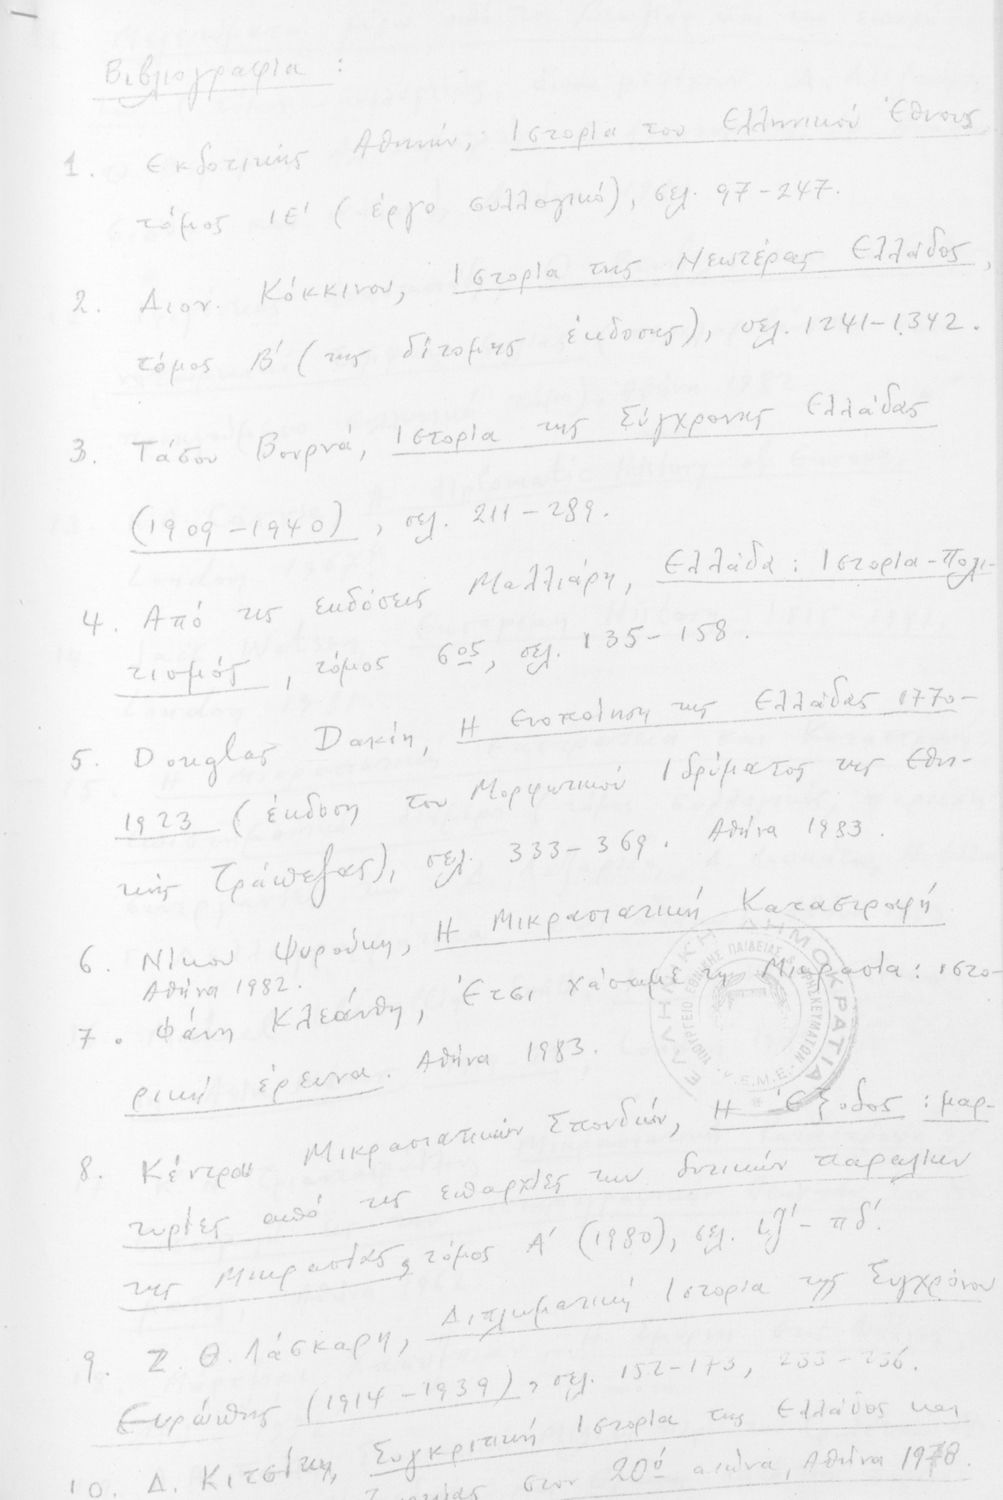 Βιβλιογραφία :
1. Εκδοτικής Αθηνών, Ιστορία του Ελληνικού Έθνους
τόμος ΙΕ' (έργο συλλογικό), σελ. 97-247.
2. Διον. Κόκκινου, Ιστορία της Νεωτέρας Ελλάδος,
τόμος Β' (της δίτομης έκδοσης), σελ. 1241-1342.
3. Τάσου Βουρνά, Ιστορία της Σύγχρονης Ελλάδας
(1909-1940), σελ. 211-289.
4. Από τις εκδόσεις Μαλλιάρη, Ελλάδα: Ιστορία-Πολι-
τισμός, τόμος 6ος, σελ. 135-158.
5. Douglas Dakin, Η Ενοποίηση της Ελλάδας 1770-
1923 (έκδοση του Μορφωτικού Ιδρύματος της Εθνι-
κής Τράπεζας), σελ. 333-369. Αθήνα 1983.
6. Νίκου Ψυρούκη, Η Μικρασιατική Καταστροφή
Αθήνα 1982.
7. Φάνη Κλεάνθη, Έτσι χάσαμε τη Μικρασία: ιστο-
ρική έρευνα. Αθήνα 1983.
8. Κέντρου Μικρασιατικών Σπουδών, Η Έξοδος: μαρ-
τυρίες από τις επαρχίες των δυτικών παραλίων
της Μικρασίας, τόμος Α' (1980), σελ. - πδ'.
9. Ζ. Θ. Λάσκαρη, Διπλωματική Ιστορία της Συγχρόνου
Ευρώπης (1914-1939), σελ. 152-173, 233-236.
10. Δ. Κιτσίκη, Συγκριτική Ιστορία της Ελλάδος και
στον 20ό αιώνα, Αθήνα 1978.
ΕΛΛΗΝΙΚΗ ΔΗΜΟΚΡΑΤΙΑ
ΥΠΟΥΡΓΕΙΟ ΕΘΝΙΚΗΣ ΠΑΙΔΕΙΑΣ & ΘΡΗΣΚΕΥΜΑΤΩΝ